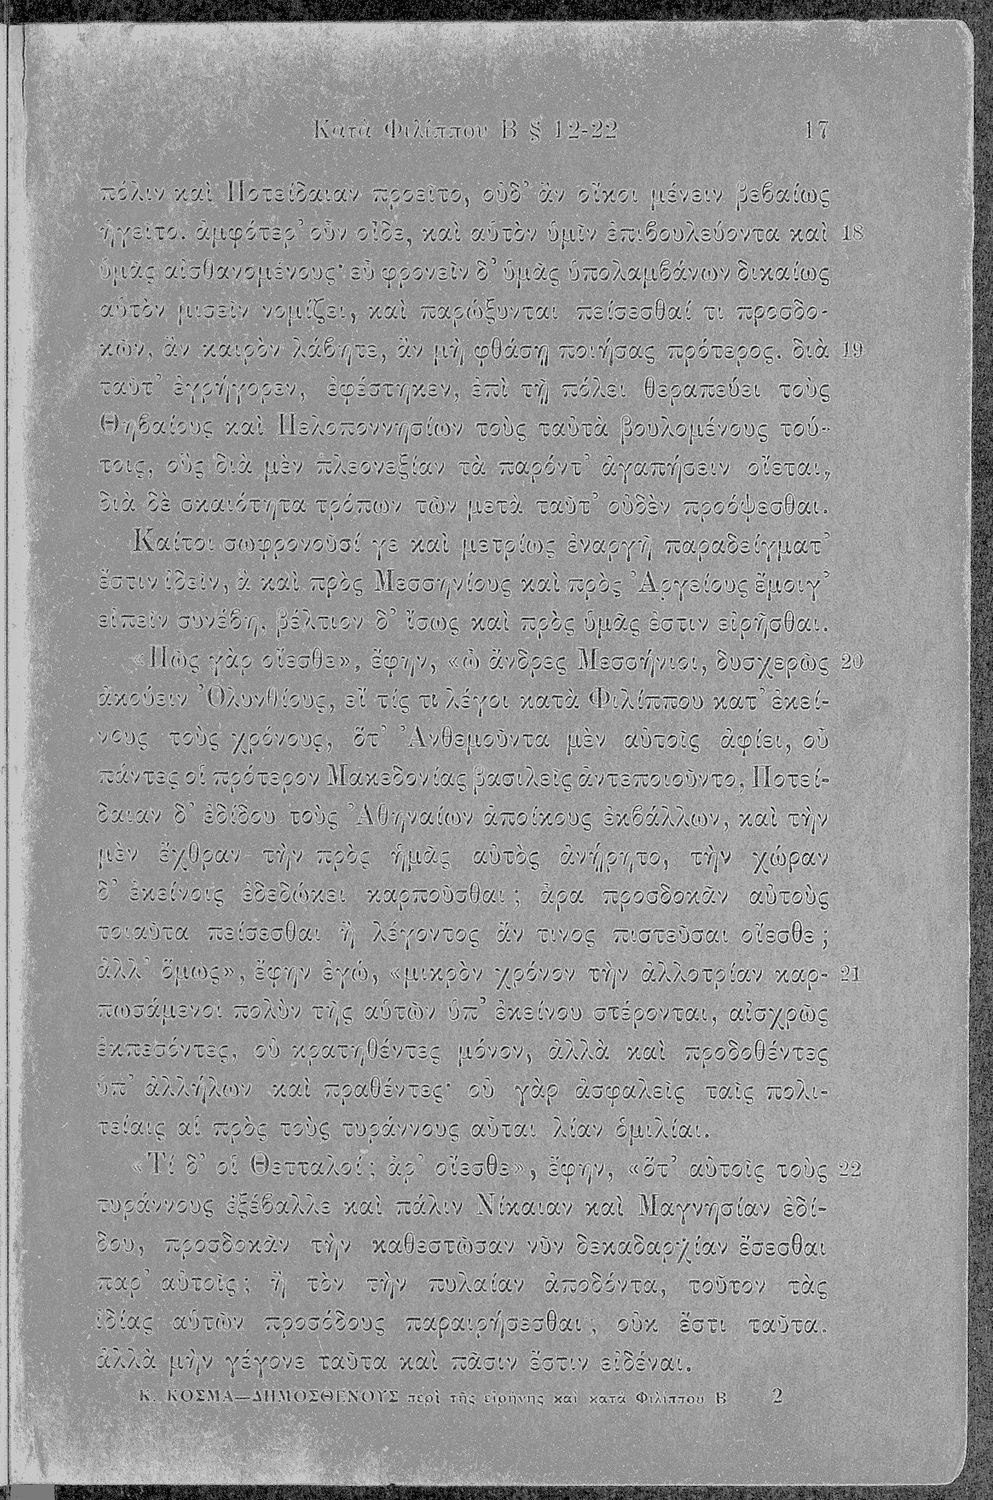 Κατὰ Φιλίππου Β § 12-22 17
πόλιν καὶ Ποτείδαιαν προεῖτο, οὐδ’ ἂν οἴκοι μένειν βεβαίως
ἡγεῖτο. ἀμφότερ’ οὖν οἶδε, καὶ αὑτὸν ὑμῖν ἐπιβουλεύοντα καὶ 18
ὑμᾶς αἰσθανομένους· εὖ φρονεῖν δ’ ὑμᾶς ὑπολαμβάνων δικαίως
αὑτὸν μισεῖν νομίζει, καὶ παρώξυνται πείσεσθαί τι προσδο-
κῶν, ἂν καιρὸν λάβητε, ἂν μὴ φθάσῃ ποιήσας πρότερος. διὰ 19
ταῦτ’ ἐγρήγορεν, ἐφέστηκεν, ἐπὶ τῇ πόλει θεραπεύει τοὺς
Θηβαίους καὶ Πελοποννησίων τοὺς ταὐτὰ βουλομένους τού-
τοις, οὓς διὰ μὲν πλεονεξίαν τὰ παρόντ’ ἀγαπήσειν οἴεται,
διὰ δὲ σκαιότητα τρόπων τῶν μετὰ ταῦτ’ οὐδὲν προόψεσθαι.
Καίτοι σωφρονοῦσί γε καὶ μετρίως ἐναργῆ παραδείγματ’
ἔστιν ἰδεῖν, ἃ καὶ πρὸς Μεσσηνίους καὶ πρὸς Ἀργείους ἔμοιγ’
εἰπεῖν συνέβη, βέλτιον δ’ ἴσως καὶ πρὸς ὑμᾶς ἐστιν εἰρῆσθαι.
«Πῶς γὰρ οἴεσθε», ἔφην, «ὦ ἄνδρες Μεσσήνιοι, δυσχερῶς 20
ἀκούειν Ὀλυνθίους, εἴ τίς τι λέγοι κατὰ Φιλίππου κατ’ ἐκεί-
νους τοὺς χρόνους, ὅτ’ Ἀνθεμοῦντα μὲν αὐτοῖς ἀφίει, οὗ
πάντες οἱ πρότερον Μακεδονίας βασιλεῖς ἀντεποιοῦντο, Ποτεί-
δαιαν δ’ ἐδίδου τοὺς Ἀθηναίων ἀποίκους ἐκβάλλων, καὶ τὴν
μὲν ἔχθραν τὴν πρὸς ἡμᾶς αὐτὸς ἀνῄρητο, τὴν χώραν
δ’ ἐκείνοις ἐδεδώκει καρποῦσθαι; ἆρα προσδοκᾶν αὐτοὺς
τοιαῦτα πείσεσθαι ἢ λέγοντος ἄν τινος πιστεῦσαι οἴεσθε;
ἀλλ’ ὅμως», ἔφην ἐγώ, «μικρὸν χρόνον τὴν ἀλλοτρίαν καρ- 21
πωσάμενοι πολὺν τῆς αὑτῶν ὑπ’ ἐκείνου στέρονται, αἰσχρῶς
ἐκπεσόντες, οὐ κρατηθέντες μόνον, ἀλλὰ καὶ προδοθέντες
ὑπ’ ἀλλήλων καὶ πραθέντες· οὐ γὰρ ἀσφαλεῖς ταῖς πολι-
τείαις αἱ πρὸς τοὺς τυράννους αὗται λίαν ὁμιλίαι.
«Τί δ’ οἱ Θετταλοί; ἆρ’ οἴεσθε», ἔφην, «ὅτ’ αὐτοῖς τοὺς 22
τυράννους ἐξέβαλλε καὶ πάλιν Νίκαιαν καὶ Μαγνησίαν ἐδί-
δου, προσδοκᾶν τὴν καθεστῶσαν νῦν δεκαδαρχίαν ἔσεσθαι
παρ’ αὐτοῖς; ἢ τὸν τὴν πυλαίαν ἀποδόντα, τοῦτον τὰς
ἰδίας αὑτῶν προσόδους παραιρήσεσθαι; οὐκ ἔστι ταῦτα.
ἀλλὰ μὴν γέγονε ταῦτα καὶ πᾶσιν ἔστιν εἰδέναι.
Κ. ΚΟΣΜΑ—ΔΗΜΟΣΘΕΝΟΥΣ περὶ τῆς εἰρήνης καὶ κατὰ Φιλίππου Β 2